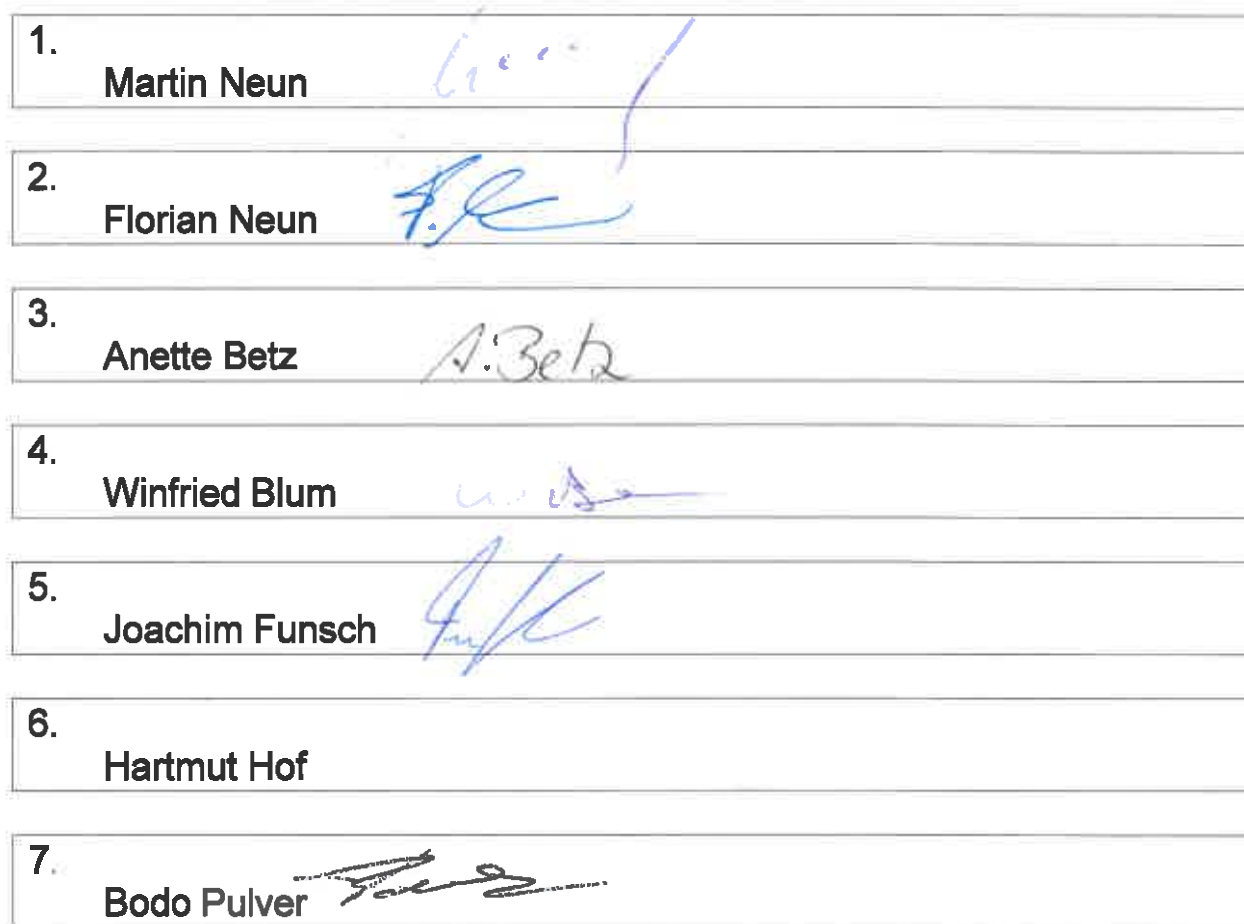 1.
Martin Neun
2.
Florian Neun
3.
Anette Betz A. Betz
4.
Winfried Blum
5.
Joachim Funsch
6.
Hartmut Hof
7.
Bodo Pulver